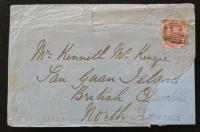 Mr. Kenneth McKenzie
San Juan Island
British Columbia
North America